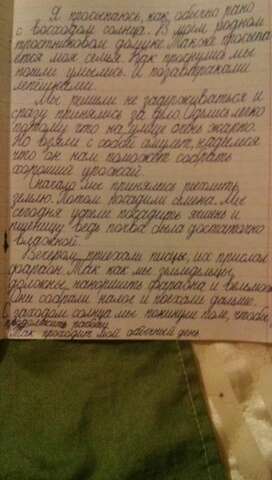 Я просыпаюсь, как обычно рано
с восходом солнца. В моем родном
тростниковом домике. Также просыпа
ется моя семья. Как проснулись мы
пошли умылись. И позавтракали
лепешками.
Мы решили не задерживаться и
сразу принялись за дело. Одышка легко
потому что на улице очень жарко.
Но взяли с собой амулет, надеемся
что он нам поможет собрать
хороший урожай
Сначала мы принялись рыхлить
землю. Потом посадили семена. Мы
сегодня успели посадить ячмень и
пшеницу ведь почва была достаточно
влажной.
Вечером приехали писцы, их прислал
фараон. Так как мы земледельцы,
должны накормить фараона и вельмож
Они собрали налог и поехали дальше.
С заходом солнца мы покинули поле, чтобы
продолжить работу
Так проходит мой обычный день